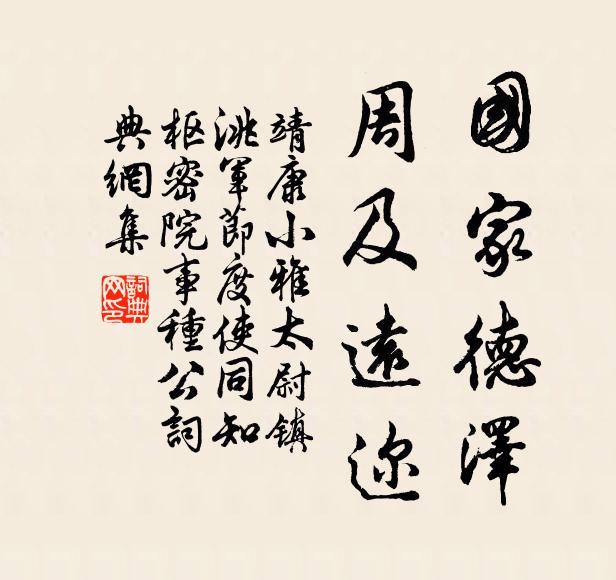 國家德澤
周及遠迩
靖康小雅太尉镇
洮軍節度使同知
枢密院事種公詞
典網集
詞典网印